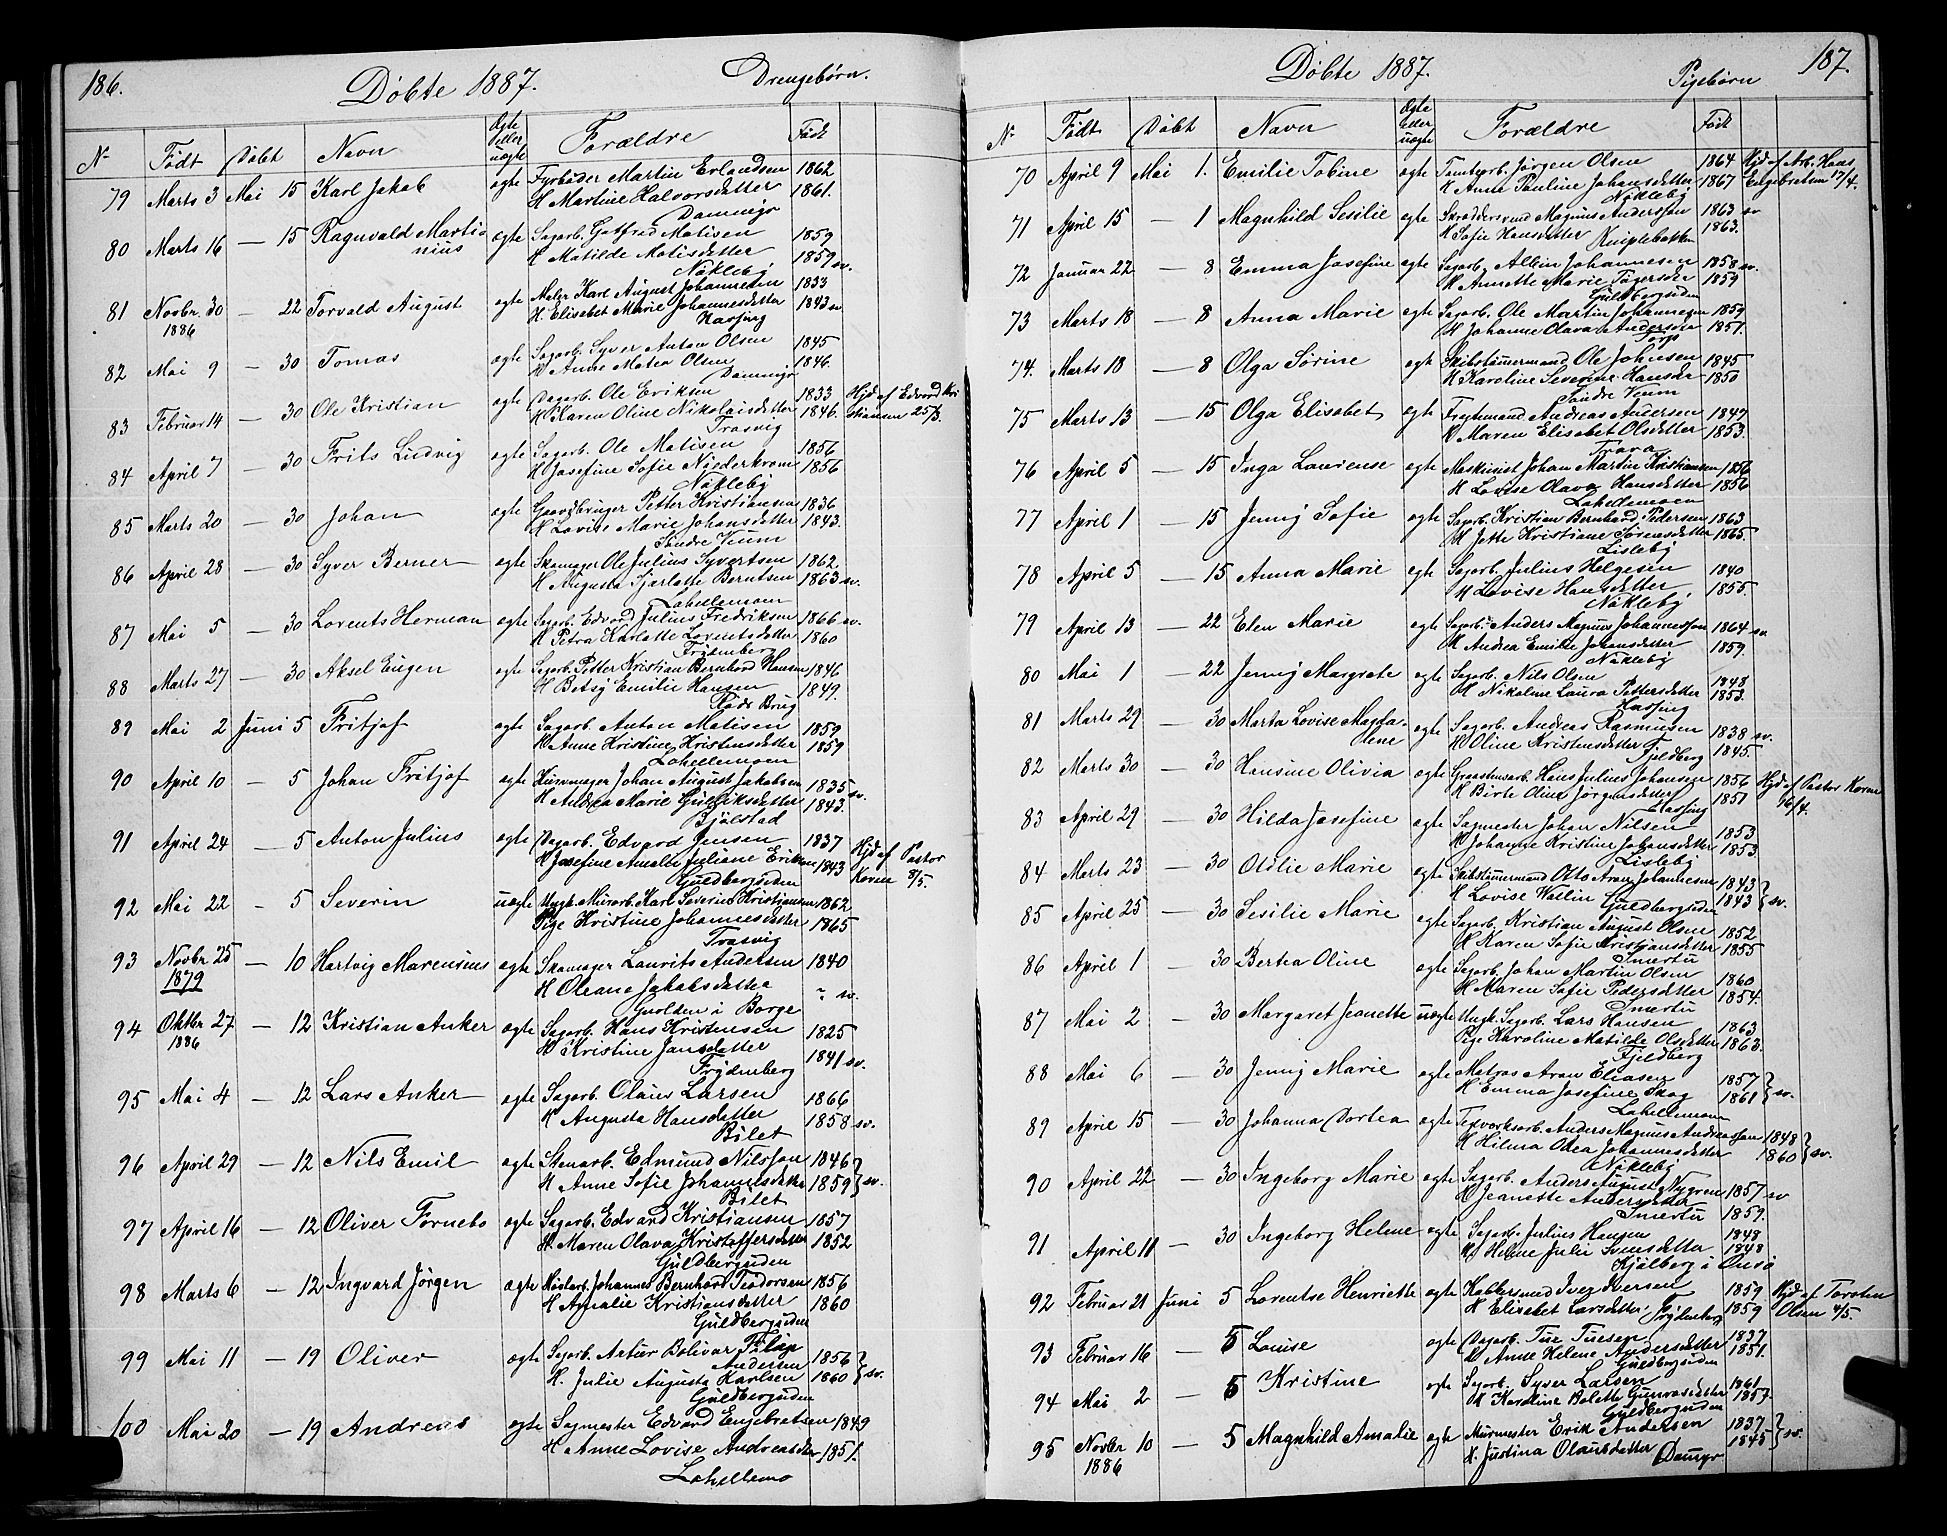 186.
Døbte 1887.
Drengebørn.
N
Født
Døbt
Navn
Ægte
eller
uægte
Forældre
Født
79 Marts 3 Mai 15 Karl Jakob ægte Fyrbøder Martin Erlandsen 1862
H Martine Halvorsdatter 1861.
Damnigr
80 Marts 16 — 15 Ragnvald Martin ægte Sagarb. Gotfred Matisen 1859
nius H Matilde Matisdatter 1859 sv.
Nökleby
81 Novbr. 30 — 22 Torvald August ægte Maler Karl August Johannesen 1833
1886 H. Elisabet Marie Johannesdatter 1843 sv
Hassing
82 Mai 9 — 30 Tomas ægte Sagarb. Syver Anton Olsen 1845
H Anne Matea Olsen 1846.
Damnigr
83 Februar 14 — 30 Ole Kristian ægte Dagarb. Ole Eriksen 1833 Hjd af Edvard Kri
H Karen Oline Nikolaisdatter 1846. stiansen 25/3.
Trosvig
84 April 7 — 30 Frits Ludvig ægte Sagarb. Ole Matisen 1856
H Josefine Sofie Niederkrom 1856
Nökleby
85 Marts 20 — 30 Johan ægte Gaardbruger Petter Kristiansen 1836
H Lovise Marie Johansdatter 1843.
Søndre Veum
86 April 28 — 30 Syver Berner ægte Skomager Ole Julius Syvertsen 1862.
H Augusta Sjarlotte Berntsen 1863 sv.
Lahellemoen
87 Mai 5 — 30 Lorents Herman ægte Sagarb. Edvard Julius Fredriksen 1866 sv.
H Petra Karlotte Lorentsdatter 1860
Frydenberg
88 Marts 27 — 30 Aksel Eugen ægte Sagarb. Petter Kristian Bernhard Hansen 1846
H Betsy Emilie Hansen 1849.
Røde Brug
89 Mai 2 Juni 5 Fritjof ægte Sagarb. Anton Matisen 1859
H Anne Kristine Kristensdatter 1859
Lahellemoen
90 April 10 — 5 Johan Fritjof ægte Hürvmager Johan August Jakobsen 1835 sv.
H Andrea Marie Gulliksdatter 1843.
Bjölstad
91 April 24 — 5 Anton Julius ægte Dagarb. Edvard Jensen 1837 Hjd af Pastor
H Josefine Amalie Juliane Eriksen 1843 Koren 8/5.
Guldbergsiden
92 Mai 22 — 5 Severin uægte Ungk. Murarb. Karl Severin Kristiansen 1862
Pige Kristine Johannesdatter 1865
Trosvig
93 Novbr. 25 — 10 Hartvig Marensius ægte Skomager Laurits Andersen 1840
1879 H Oleane Jakobsdatter " sv.
Guolden i Borge
94 Oktbr 27 — 12 Kristian Anker ægte Sagarb. Hans Kristensen 1825
1886 H Kristine Jansdatter 1841 sv.
Frydenberg
95 Mai 4 — 12 Lars Anker ægte Sagarb. Olaus Larsen 1866
H Augusta Hansdatter 1858 sv.
Bilet
96 April 29 — 12 Nils Emil ægte Stenarb. Edmund Nilsson 1846
H Anne Sofie Johannesdatter 1859 } sv.
Bilet
97 April 16 — 12 Oliver Fornebo ægte Sagarb. Edvard Kristiansen 1857
H Maren Olava Kristoffersdatter 1852
Guldbergsiden
98 Marts 6 — 12 Ingvard Jörgen ægte Høvlarb. Johannes Bernhard Teodorsen 1856
H Amalie Kristiansdatter 1860
Guldbergsiden
99 Mai 11 — 19 Oliver ægte Sagarb. Artur Bolivar Filip
Andersen 1856
H. Julie Augusta Karlsen 1860 } sv.
Guldbergsiden
100 Mai 20 — 19 Andreas ægte Sagmester Edvard Engebretsen 1849
H Anne Lovise Andreasdatter 1851.
Lahellemo
187.
Døbte 1887.
Pigebørn
Nr
Født
Døbt
Navn
Ægte
eller
uægte
Forældre
Født
70 April 9 Mai 1. Emilie Tobine ægte Tomtearb. Jörgen Olsen 1864 Hjd af Arb. Hans
H Anna Pauline Johansdatter 1867 Engebretsen 17/4.
Nökleby
71 April 15 — 1 Magnhild Sesilie ægte Skræddersvend Magnus Andersson 1863 sv
H Sofie Hansdatter Kniplebakken 1863.
72 Januar 22 — 8 Emma Josefine ægte Sagarb. Albin Johannesen 1858 sv.
H Annette Marie Tagersdr 1859
Guldbergsiden
73 Marts 18 — 8 Anna Marie ægte Sagarb. Ole Martin Johannesen 1859
H Johanne Olava Andersen 1851.
Torp
74. Marts 18 — 8 Olga Sörine ægte Skibstømmermand Ole Johnsen 1845
H Karoline Severine Hansdr 1850
Søndre Veum
75 Marts 13 — 15 Olga Elisabet ægte Frugtmand Andreas Andersen 1847
H Maren Elisabet Olsdatter 1853.
Trara
76 April 5 — 15 Inga Laurense ægte Maskinist Johan Martin Kristiansen 1856
H Lovise Olava Hansdatter 1856
Lahellemoen
77 April 1 — 15 Jenny Sofie ægte Sagarb. Kristian Bernhard Pedersen 1863
H Jette Kristiane Sørensdatter 1865.
Lisleby
78 April 5 — 15 Anna Marie ægte Sagarb. Julius Helgesen 1840
H Lovise Hansdatter 1855.
Nökleby
79 April 13 — 22 Elen Marie ægte Sagarb. Anders Magnus Johannesson 1864 sv
H Andrea Emilie Johansdatter 1859.
Nökleby
80 Mai 1 — 22 Jenny Margrete ægte Sagarb. Nils Olsen 1848
H Nikoline Laura Pettersdatter 1853.
Hassing
81 Marts 29 — 30 Marta Lovise Magda- ægte Sagarb. Andreas Rasmusen 1838 sv.
lene H Oline Kristensdatter 1845.
Fjeldberg
82 Marts 30 — 30 Hansine Olivia ægte Graastensarb. Hans Julius Johansen 1856 Hjd af Pastor Koren
H Birte Oline Jörgensdatter 1851 16/4.
Hassing
83 April 29 — 30 Hilda Josefine ægte Sagmester Johan Nilsen 1853
H Johanne Kristine Johansdatter 1853.
Lisleby
84 Marts 23 — 30 Otilie Marie ægte Skibstømmermand Otto Aron Johannesen 1843
H Lovise Wallin Guldbergsiden 1843 } sv.
85 April 25 — 30 Sesilie Marie ægte Sagarb. Kristian August Olsen 1852
H Karen Sofie Kristiansdatter 1855
Smertu
86 April 1 — 30 Bertea Oline ægte Sagarb. Johan Martin Olsen 1860
H Maren Sofie Pedersdatter 1854.
Smertu
87 Mai 2 — 30 Margaret Jeanette uægte Ungk. Sagarb. Lars Hansen 1863
Pige Karoline Matilde Olsdatter 1863.
Fjeldberg
88 Mai 6 — 30 Jenny Marie ægte Matros Aron Eliasen 1857
H Emma Josefine Skog 1861 } sv.
Lahellemoen
89 April 15 — 30 Johanna Dortea ægte Teglværksarb. Anders Magnus Andreasson 1848
H Hilma Odea Johannesdatter 1860 } sv.
Nökleby
90 April 22 — 30 Ingeborg Marie ægte Sagarb. Anders August Nygren 1857 sv
H Jeanette Andersdatter 1859.
Smertu
91 April 11 — 30 Ingeborg Helene ægte Sagarb. Julius Hansen 1848
H Helene Julie Svensdatter 1848
Kjølberg i Onsø
92 Februar 21 Juni 5 Lorentse Henriette ægte Kobbersmed Iver Iversen 1859 Hjd af Torsten
H Elisabet Larsdatter, Frydenberg 1859 Olsen 4/5.
93 Februar 16 — 5 Louise ægte Dagarb. Tue Tuesen 1837
H Anne Helene Andersdatter 1851.
Guldbergsiden
94 Mai 2 — 5 Kristine ægte Sagarb. Syver Larsen 1861
H Karoline Bolette Gunvaldsdatter 1857.
Guldbergsiden
95 Novbr 10 — 5 Magnhild Amalie ægte Murmester Erik Andersen 1837
1886 H. Justina Olausdatter 1845 } sv.
Damyr